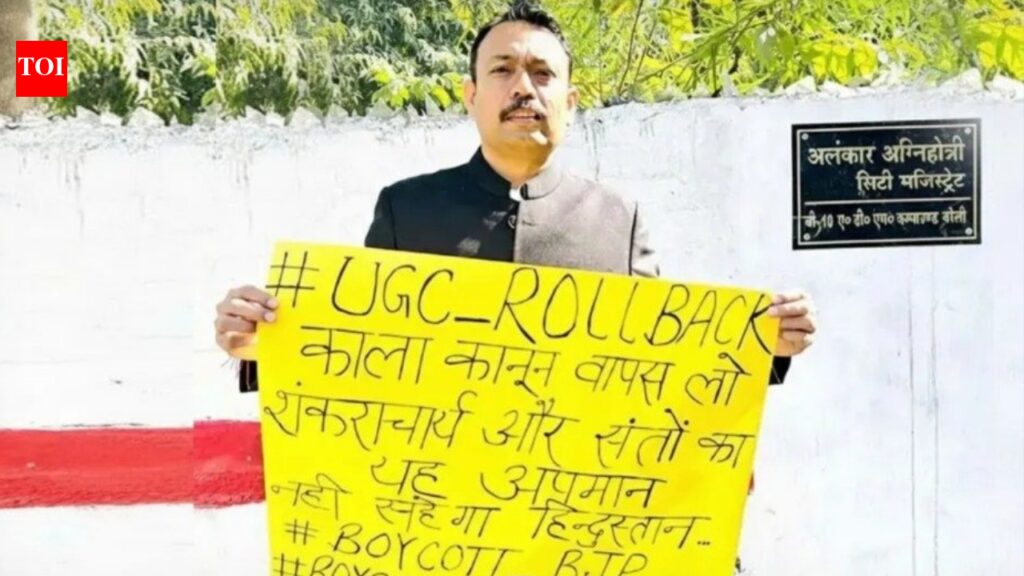 TOI
अलंकार अग्निहोत्री
सिटी मजिस्ट्रेट
बी-10 ए० डी० एम० कम्पाउण्ड
#UGC_ROLLBACK
काला कानून वापस लो
शंकराचार्य और संतों का
यह अपमान
नहीं सहेगा हिन्दुस्तान...
# BOYCOTT BJP